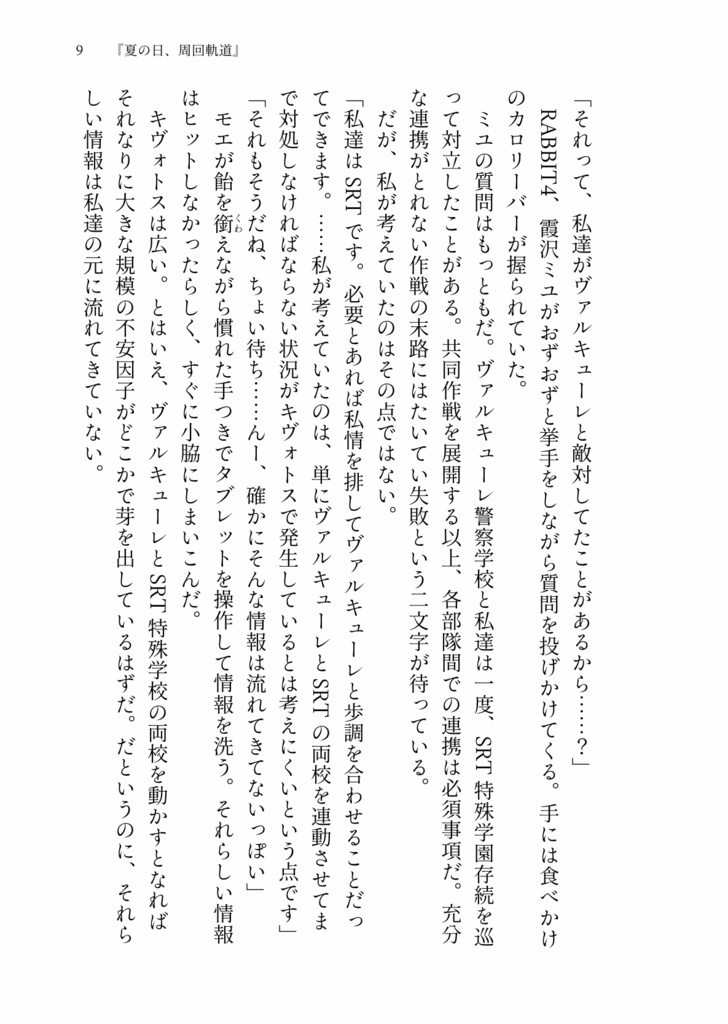 9 『夏の日、周回軌道』
「それって、私達がヴァルキューレと敵対してたことがあるから……？」
RABBIT4、霞沢ミユがおずおずと挙手をしながら質問を投げかけてくる。手には食べかけ
のカロリーバーが握られていた。
ミユの質問はもっともだ。ヴァルキューレ警察学校と私達は一度、SRT特殊学園存続を巡
って対立したことがある。共同作戦を展開する以上、各部隊間での連携は必須事項だ。充分
な連携がとれない作戦の末路にはたいてい失敗という二文字が待っている。
だが、私が考えていたのはその点ではない。
「私達はSRTです。必要とあれば私情を排してヴァルキューレと歩調を合わせることだっ
てできます。……私が考えていたのは、単にヴァルキューレとSRTの両校を連動させてま
で対処しなければならない状況がキヴォトスで発生しているとは考えにくいという点です」
「それもそうだね、ちょい待ち……んー、確かにそんな情報は流れてきてないっぽい」
モエが飴を銜えながら慣れた手つきでタブレットを操作して情報を洗う。それらしい情報
くわ
はヒットしなかったらしく、すぐに小脇にしまいこんだ。
キヴォトスは広い。とはいえ、ヴァルキューレとSRT特殊学校の両校を動かすとなれば
それなりに大きな規模の不安因子がどこかで芽を出しているはずだ。だというのに、それら
しい情報は私達の元に流れてきていない。